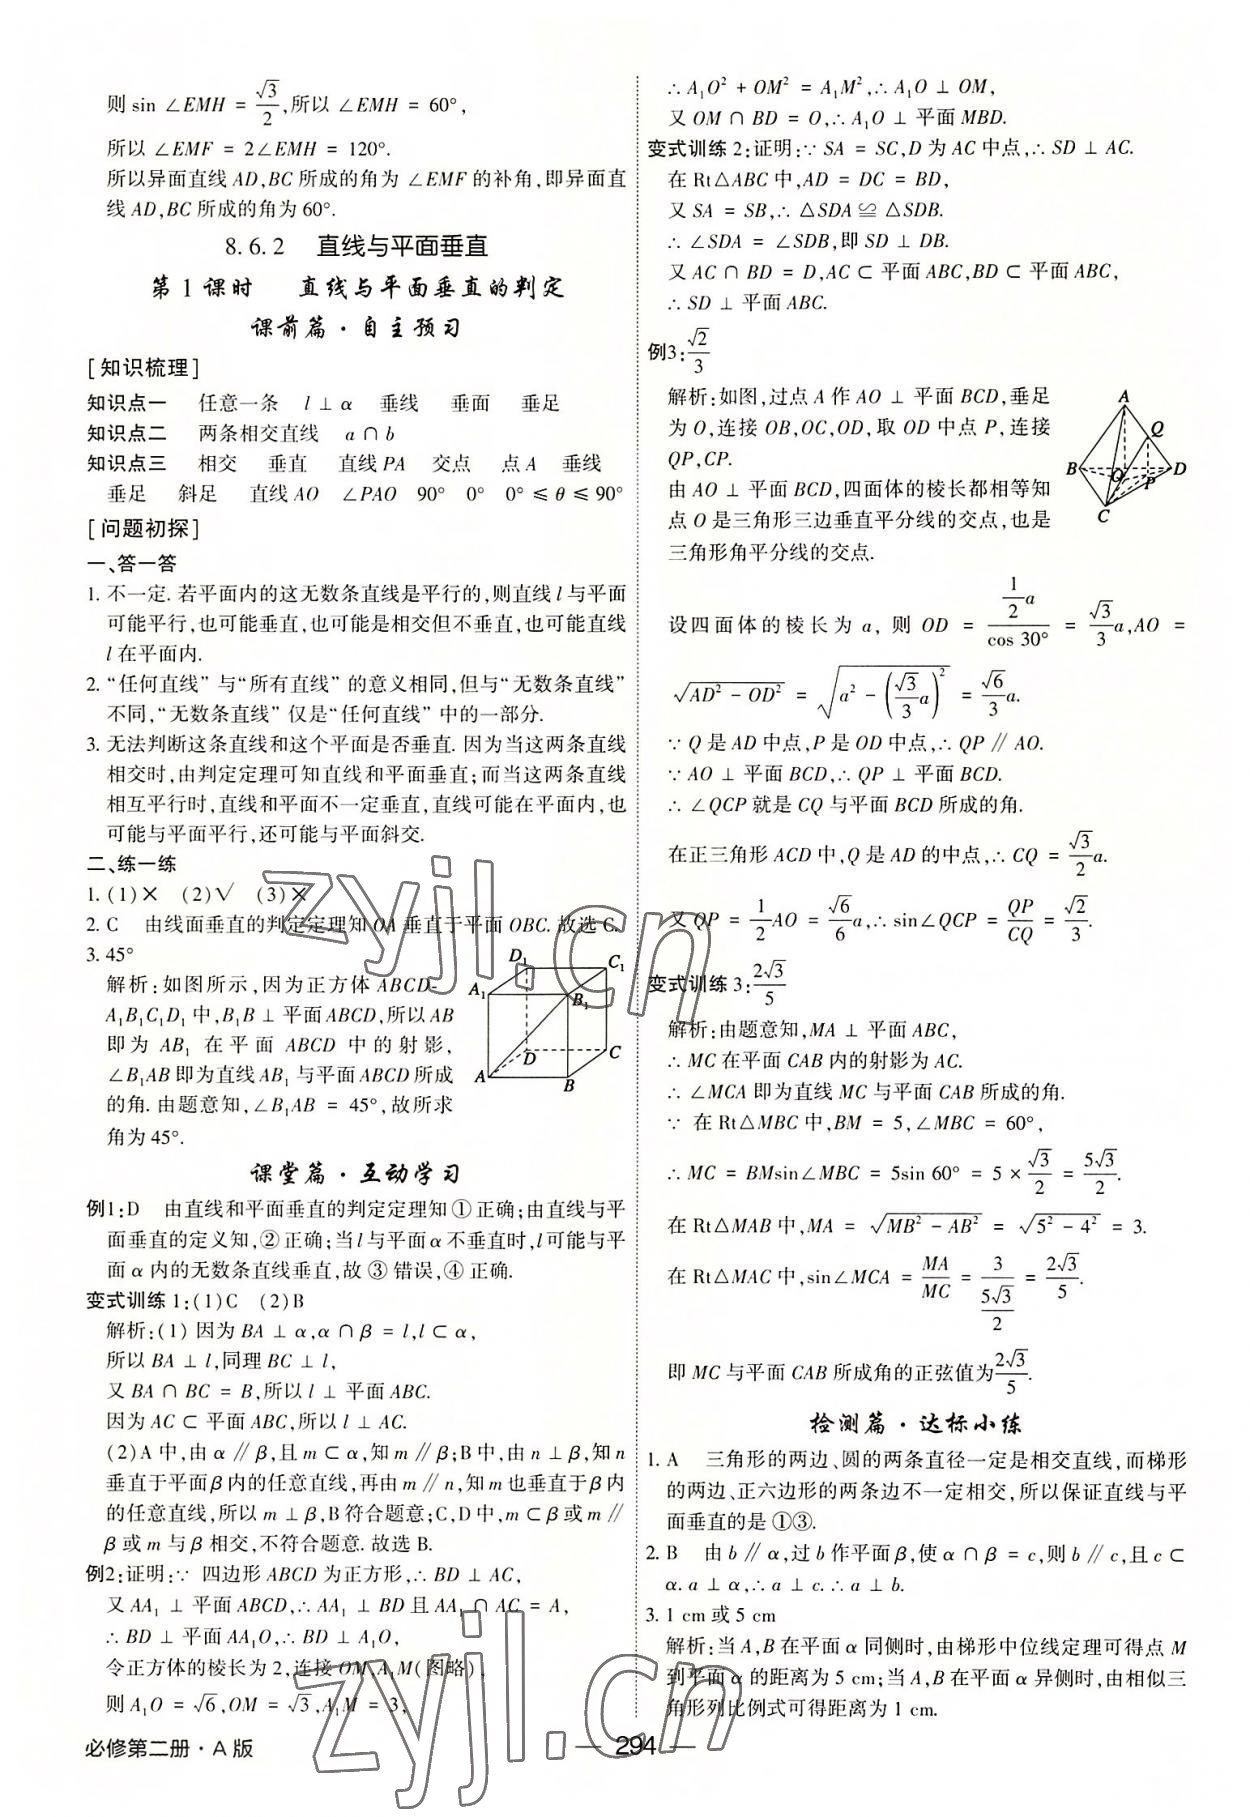 则 sin ∠EMH = √3/2,所以 ∠EMH = 60°,
所以 ∠EMF = 2∠EMH = 120°.
所以异面直线 AD,BC 所成的角为 ∠EMF 的补角,即异面直
线 AD,BC 所成的角为 60°.
8.6.2 直线与平面垂直
第 1 课时 直线与平面垂直的判定
课前篇·自主预习
[知识梳理]
知识点一 任意一条 l⊥α 垂线 垂面 垂足
知识点二 两条相交直线 a∩b
知识点三 相交 垂直 直线 PA 交点 点 A 垂线
垂足 斜足 直线 AO ∠PAO 90° 0° 0°≤θ≤90°
[问题初探]
一、答一答
1. 不一定. 若平面内的这无数条直线是平行的,则直线 l 与平面
可能平行,也可能垂直,也可能是相交但不垂直,也可能直线
l 在平面内.
2. “任何直线” 与“所有直线” 的意义相同,但与“无数条直线”
不同,“无数条直线” 仅是“任何直线” 中的一部分.
3. 无法判断这条直线和这个平面是否垂直. 因为当这两条直线
相交时,由判定定理可知直线和平面垂直;而当这两条直线
相互平行时,直线和平面不一定垂直,直线可能在平面内,也
可能与平面平行,还可能与平面斜交.
二、练一练
1. (1)× (2)√ (3)×
2. C 由线面垂直的判定定理知 OA 垂直于平面 OBC. 故选 C.
3. 45°
解析:如图所示,因为正方体 ABCD-
A₁B₁C₁D₁ 中,B₁B⊥平面 ABCD,所以 AB
即为 AB₁ 在平面 ABCD 中的射影,
∠B₁AB 即为直线 AB₁ 与平面 ABCD 所成
的角. 由题意知,∠B₁AB = 45°,故所求
角为 45°.
D₁ C₁
A₁ B₁
D C
A B
课堂篇·互动学习
例1:D 由直线和平面垂直的判定定理知 ① 正确;由直线与平
面垂直的定义知,② 正确;当 l 与平面 α 不垂直时,l 可能与平
面 α 内的无数条直线垂直,故 ③ 错误,④ 正确.
变式训练 1:(1)C (2)B
解析:(1) 因为 BA⊥α,α∩β = l,l⊂α,
所以 BA⊥l,同理 BC⊥l,
又 BA∩BC = B,所以 l⊥平面 ABC.
因为 AC⊂平面 ABC,所以 l⊥AC.
(2)A 中,由 α∥β,且 m⊂α,知 m∥β;B 中,由 n⊥β,知 n
垂直于平面 β 内的任意直线,再由 m∥n,知 m 也垂直于 β 内
的任意直线,所以 m⊥β,B 符合题意;C,D 中,m⊂β 或 m∥
β 或 m 与 β 相交,不符合题意. 故选 B.
例2:证明:∵ 四边形 ABCD 为正方形,∴ BD⊥AC,
又 AA₁⊥平面 ABCD,∴ AA₁⊥BD 且 AA₁∩AC = A,
∴ BD⊥平面 AA₁O,∴ BD⊥A₁O,
令正方体的棱长为 2,连接 OM,A₁M(图略),
则 A₁O = √6,OM = √3,A₁M = 3,
∴ A₁O² + OM² = A₁M²,∴ A₁O⊥OM,
又 OM∩BD = O,∴ A₁O⊥平面 MBD.
变式训练 2:证明:∵ SA = SC,D 为 AC 中点,∴ SD⊥AC.
在 Rt△ABC 中,AD = DC = BD,
又 SA = SB,∴ △SDA≌△SDB.
∴ ∠SDA = ∠SDB,即 SD⊥DB.
又 AC∩BD = D,AC⊂平面 ABC,BD⊂平面 ABC,
∴ SD⊥平面 ABC.
例3:√2/3
解析:如图,过点 A 作 AO⊥平面 BCD,垂足
为 O,连接 OB,OC,OD,取 OD 中点 P,连接
QP,CP.
由 AO⊥平面 BCD,四面体的棱长都相等知
点 O 是三角形三边垂直平分线的交点,也是
三角形角平分线的交点.
A
Q
B O D
P
C
设四面体的棱长为 a, 则 OD = (1/2 a)/(cos 30°) = √3/3 a,AO =
√(AD² − OD²) = √(a² − (√3/3 a)²) = √6/3 a.
∵ Q 是 AD 中点,P 是 OD 中点,∴ QP∥AO.
∵ AO⊥平面 BCD,∴ QP⊥平面 BCD.
∴ ∠QCP 就是 CQ 与平面 BCD 所成的角.
在正三角形 ACD 中,Q 是 AD 的中点,∴ CQ = √3/2 a.
又 QP = 1/2 AO = √6/6 a,∴ sin∠QCP = QP/CQ = √2/3.
变式训练 3:2√3/5
解析:由题意知,MA⊥平面 ABC,
∴ MC 在平面 CAB 内的射影为 AC.
∴ ∠MCA 即为直线 MC 与平面 CAB 所成的角.
∵ 在 Rt△MBC 中,BM = 5,∠MBC = 60°,
∴ MC = BMsin∠MBC = 5sin 60° = 5 × √3/2 = 5√3/2.
在 Rt△MAB 中,MA = √(MB² − AB²) = √(5² − 4²) = 3.
在 Rt△MAC 中,sin∠MCA = MA/MC = 3/(5√3/2) = 2√3/5.
即 MC 与平面 CAB 所成角的正弦值为 2√3/5.
检测篇·达标小练
1. A 三角形的两边、圆的两条直径一定是相交直线,而梯形
的两边、正六边形的两条边不一定相交,所以保证直线与平
面垂直的是 ①③.
2. B 由 b∥α,过 b 作平面 β,使 α∩β = c,则 b∥c,且 c⊂
α. a⊥α,∴ a⊥c. ∴ a⊥b.
3. 1 cm 或 5 cm
解析:当 A,B 在平面 α 同侧时,由梯形中位线定理可得点 M
到平面 α 的距离为 5 cm;当 A,B 在平面 α 异侧时,由相似三
角形列比例式可得距离为 1 cm.
必修第二册·A 版
— 294 —
zyjl.cn
zyjl.cn